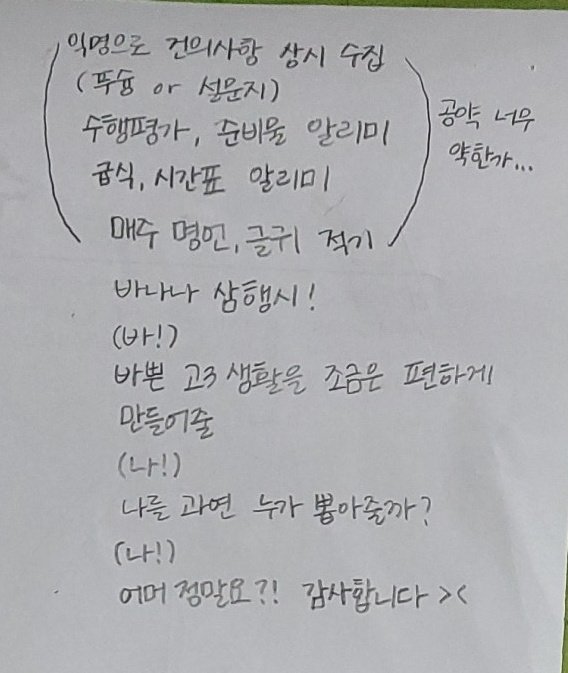 익명으로 건의사항 상시 수집
(뚜슘 or 설문지)
수행평가, 준비물 알리미
급식, 시간표 알리미
매주 명언, 글귀 적기
공약 너무
약한가...
바나나 삼행시!
(바!)
바쁜 고3 생활을 조금은 편하게
만들어줄
(나!)
나를 과연 누가 뽑아줄까?
(나!)
어머 정말요?! 감사합니다 ><